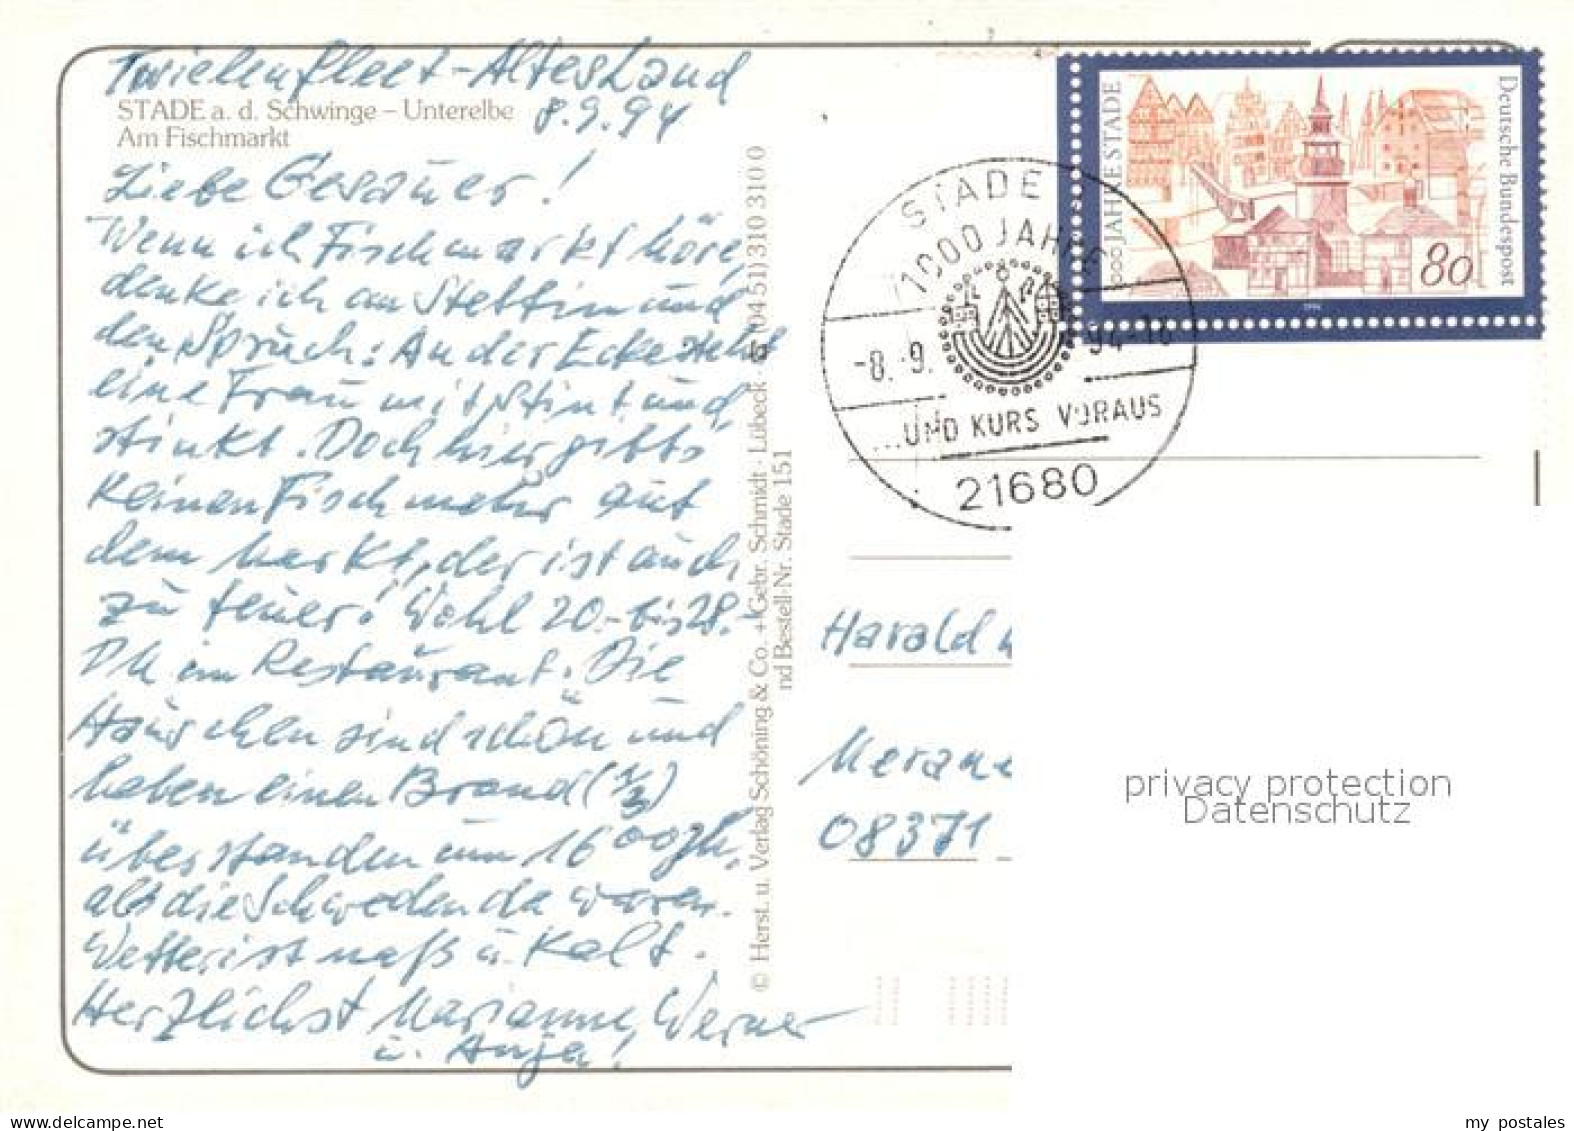 Twielenfleet-Altes Land
8.9.94
STADE a. d. Schwinge – Unterelbe
Am Fischmarkt
Liebe Gesauer!
Wenn ich Fischmarkt höre,
denke ich an Stettin und
den Spruch: An der Ecke steht
eine Frau mit Stint und
stinkt. Doch hier gibts
keinen Fisch mehr auf
dem Markt, der ist auch
zu teuer! Wohl 20.- bis 28.-
DM im Restaurant. Die
Häuschen sind schön und
haben einen Brand (1/3)
überstanden um 1600
als die Schweden da waren.
Wetter ist naß u. kalt.
Herzlichst Marianne, Werner
u. Anja!
© Herst. u. Verlag Schöning & Co. + Gebr. Schmidt · Lübeck · (04 51) 310 310 0
nd Bestell-Nr. Stade 151
1000 JAHRE STADE
Deutsche Bundespost
80
1994
STADE
1000 JAHRE
-8.-9. 94-16
...UND KURS VORAUS
21680
Harald
Merane
08371
privacy protection
Datenschutz
my postales